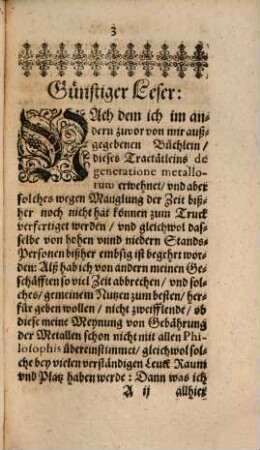 3
Günstiger Leser:
NAch dem ich im an-
dern zuvor von mir auß-
gegebenen Büchlein /
dieses Tractätleins de
generatione metallo-
rum erwehnet / vnd aber
solches wegen Mauglung der Zeit biß-
her noch nicht hat können zum Truck
verfertiget werden / vnd gleichwol das-
selbe von hohen vnnd niedern Stands-
Personen bißher embsig ist begehrt wor-
den: Alß hab ich von andern meinen Ge-
schäfften so viel Zeit abbrechen / vnd sol-
ches / gemeinem Nutzen zum besten / her-
für geben wollen / nicht zweifflende / ob
diese meine Meynung von Gebährung
der Metallen schon nicht mit allen Phi-
losophis übereinstimmet / gleichwol sol-
che bey vielen verständigen Leutē Raum
vnd Platz haben werde: Dann was ich
A ij allhier